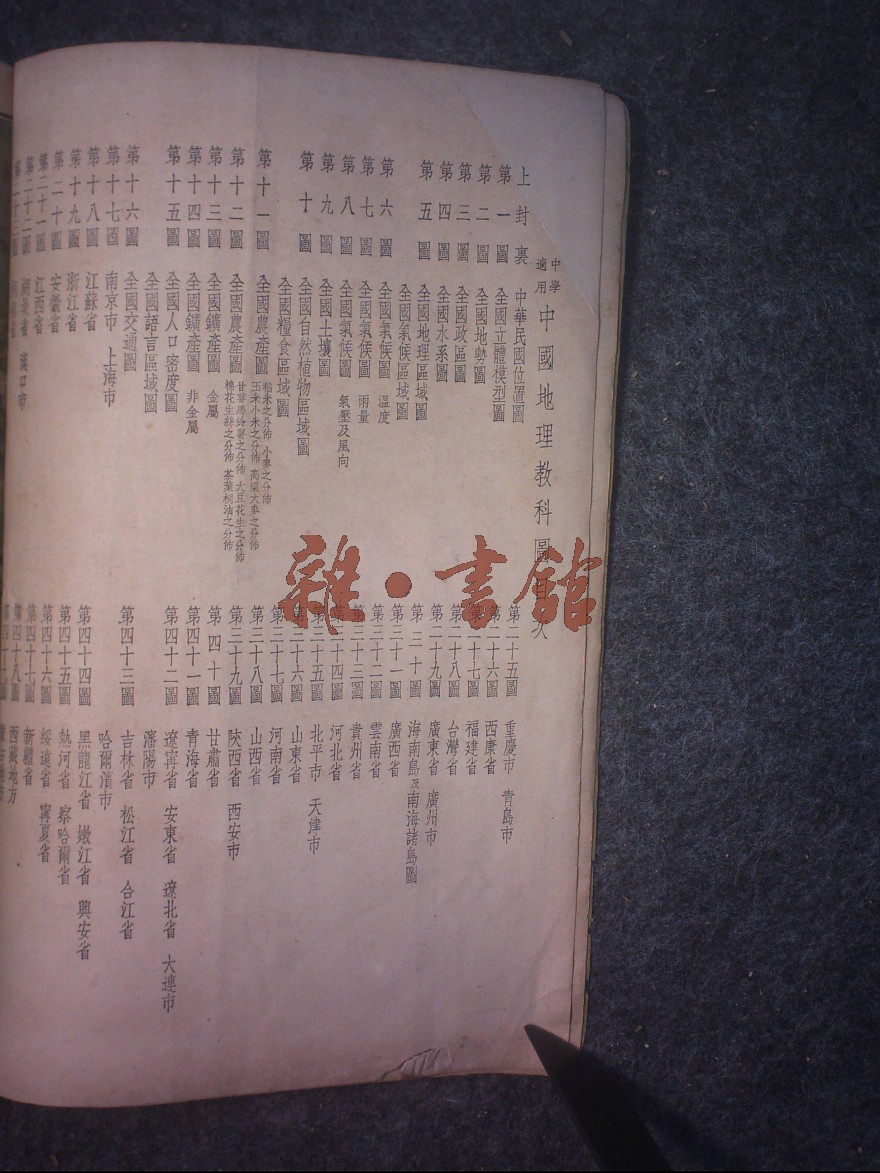 中學適用 中國地理教科圖目次
上封裏 中華民國位置圖
第一圖 全國立體模型圖
第二圖 全國地勢圖
第三圖 全國政區圖
第四圖 全國水系圖
第五圖 全國地理區域圖
全國氣候區域圖
第六圖 全國氣候圖 溫度
第七圖 全國氣候圖 雨量
第八圖 全國氣候圖 氣壓及風向
第九圖 全國土壤圖
第十圖 全國自然植物區域圖
全國糧食區域圖
第十一圖 全國農產圖 稻米之分佈 小麥之分佈 玉米小米之分佈 高粱大麥之分佈
第十二圖 全國農產圖 甘薯馬鈴薯之分佈 大豆花生之分佈 棉花生絲之分佈 茶葉桐油之分佈
第十三圖 全國鑛產圖 金屬
第十四圖 全國鑛產圖 非金屬
第十五圖 全國人口密度圖
全國語言區域圖
第十六圖 全國交通圖
第十七圖 南京市 上海市
第十八圖 江蘇省
第十九圖 浙江省
第二十圖 安徽省
第二十一圖 江西省
第二十二圖 湖北省 漢口市
第二十三圖
第二十五圖 重慶市 青島市
第二十六圖 西康省
第二十七圖 福建省
第二十八圖 台灣省
第二十九圖 廣東省 廣州市
第三十圖 海南島及南海諸島圖
第三十一圖 廣西省
第三十二圖 雲南省
第三十三圖 貴州省
第三十四圖 河北省
第三十五圖 北平市 天津市
第三十六圖 山東省
第三十七圖 河南省
第三十八圖 山西省
第三十九圖 陝西省 西安市
第四十圖 甘肅省
第四十一圖 青海省
第四十二圖 遼寧省 安東省 遼北省 大連市
瀋陽市
第四十三圖 吉林省 松江省 合江省
哈爾濱市
第四十四圖 黑龍江省 嫩江省 興安省
第四十五圖 熱河省 察哈爾省
第四十六圖 綏遠省 寧夏省
第四十七圖 新疆省
第四十八圖 西藏地方
第四十九圖
雜·書館